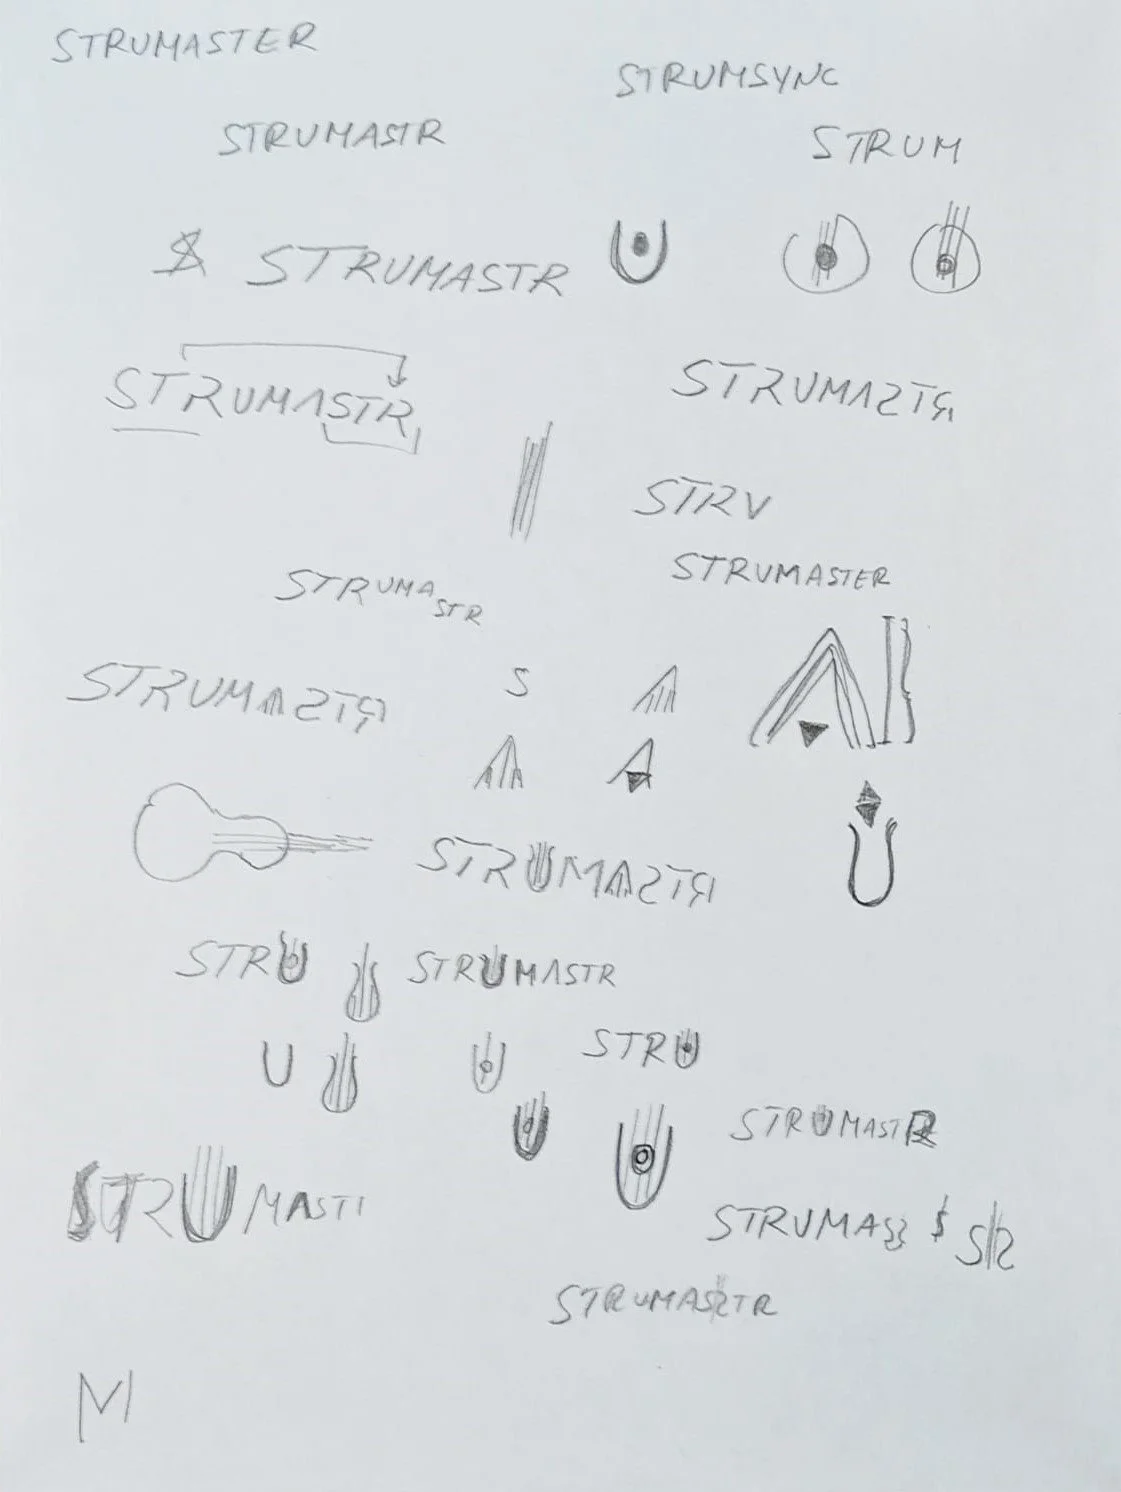 STRUMASTER
STRUMSYNC
STRUMASTR
STRUM
$ STRUMASTR
STRUMASTR
STRUMASTR
STRV
STRUMASTER
STRUMASTR
STRUMASTR
S
AI
STRUMASTR
STRU
STRUMASTR
U
STRU
STRUMASTR
STRUMASTI
STRUMAS
$
STRUMASTR
M